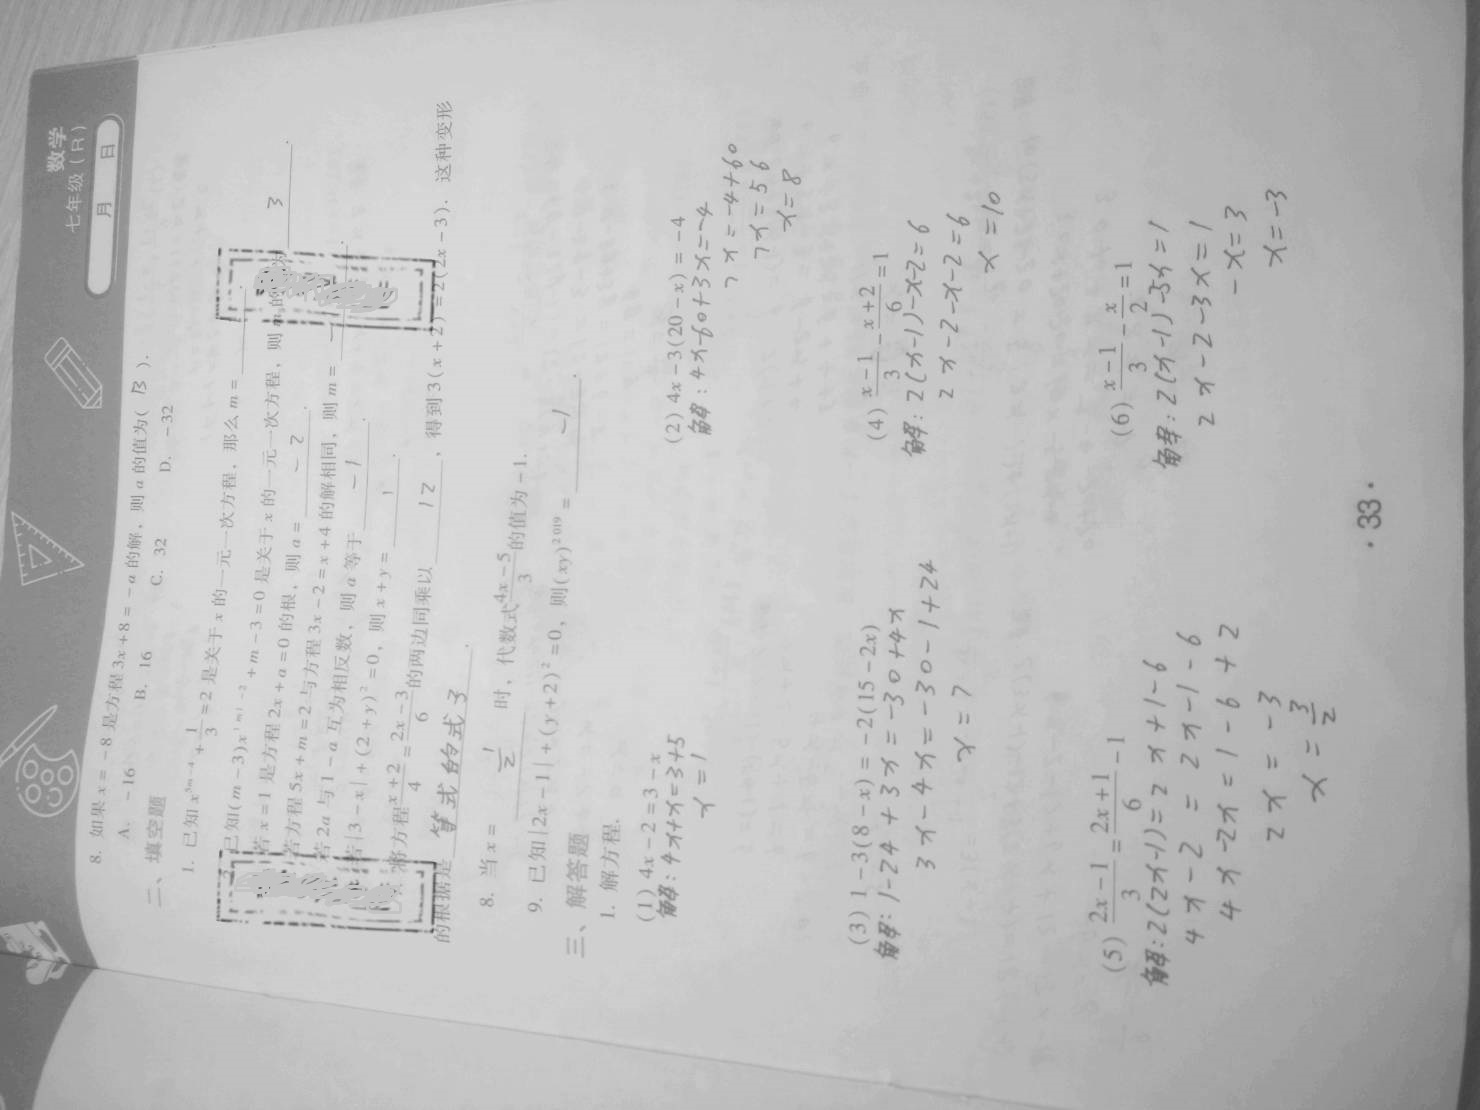 数学
七年级(R)
月 日
8. 如果x=-8是方程3x+8=-a的解,则a的值为( B ).
A. -16 B. 16 C. 32 D. -32
二、填空题
1. 已知x^{3m-4}+\frac{1}{3}=2是关于x的一元一次方程,那么m=
已知(m-3)x^{|m|-2}+m-3=0是关于x的一元一次方程,则m的 为 3 .
若x=1是方程2x+a=0的根,则a= -2 .
若方程5x+m=2与方程3x-2=x+4的解相同,则m=
若2a与1-a互为相反数,则a等于 -1 .
若|3-x|+(2+y)²=0,则x+y= 1 .
将方程\frac{x+2}{4}=\frac{2x-3}{6}的两边同乘以 12 ,得到3(x+2)=2(2x-3). 这种变形
的根据是 等式的式3 .
8. 当x= \frac{1}{2} 时,代数式\frac{4x-5}{3}的值为-1.
9. 已知|2x-1|+(y+2)²=0,则(xy)^{2019}= -1 .
三、解答题
1. 解方程.
(1) 4x-2=3-x
解:4x+x=3+5
x=1
(2) 4x-3(20-x)=-4
解:4x-60+3x=-4
7x=-4+60
7x=56
x=8
(3) 1-3(8-x)=-2(15-2x)
解:1-24+3x=-30+4x
3x-4x=-30-1+24
x=7
(4) \frac{x-1}{3}-\frac{x+2}{6}=1
解:2(x-1)-x-2=6
2x-2-x-2=6
x=10
(5) \frac{2x-1}{3}=\frac{2x+1}{6}-1
解:2(2x-1)=2x+1-6
4x-2=2x-1-6
4x-2x=1-6+2
2x=-3
x=\frac{3}{2}
(6) \frac{x-1}{3}-\frac{x}{2}=1
解:2(x-1)-3x=1
2x-2-3x=1
-x=3
x=-3
·33·